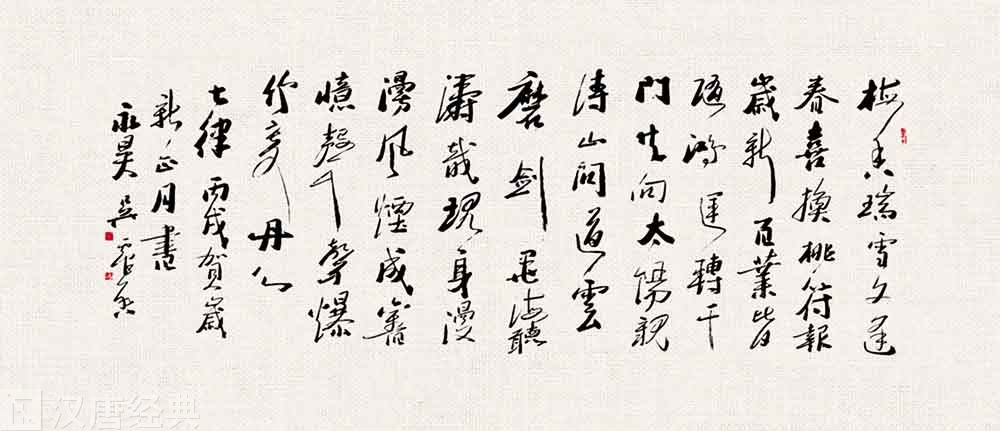 梅香瑞雪又逢
春喜換桃符報
歲新百業皆
鴻運轉千
門共向太陽親
濤山問道雲
磨劍飛海聽
濤戰現身漫
漫風煙成舊
憶聲聲爆
竹音丹心
七律丙戌賀歲
新正月書
永昊吳
汉唐经典